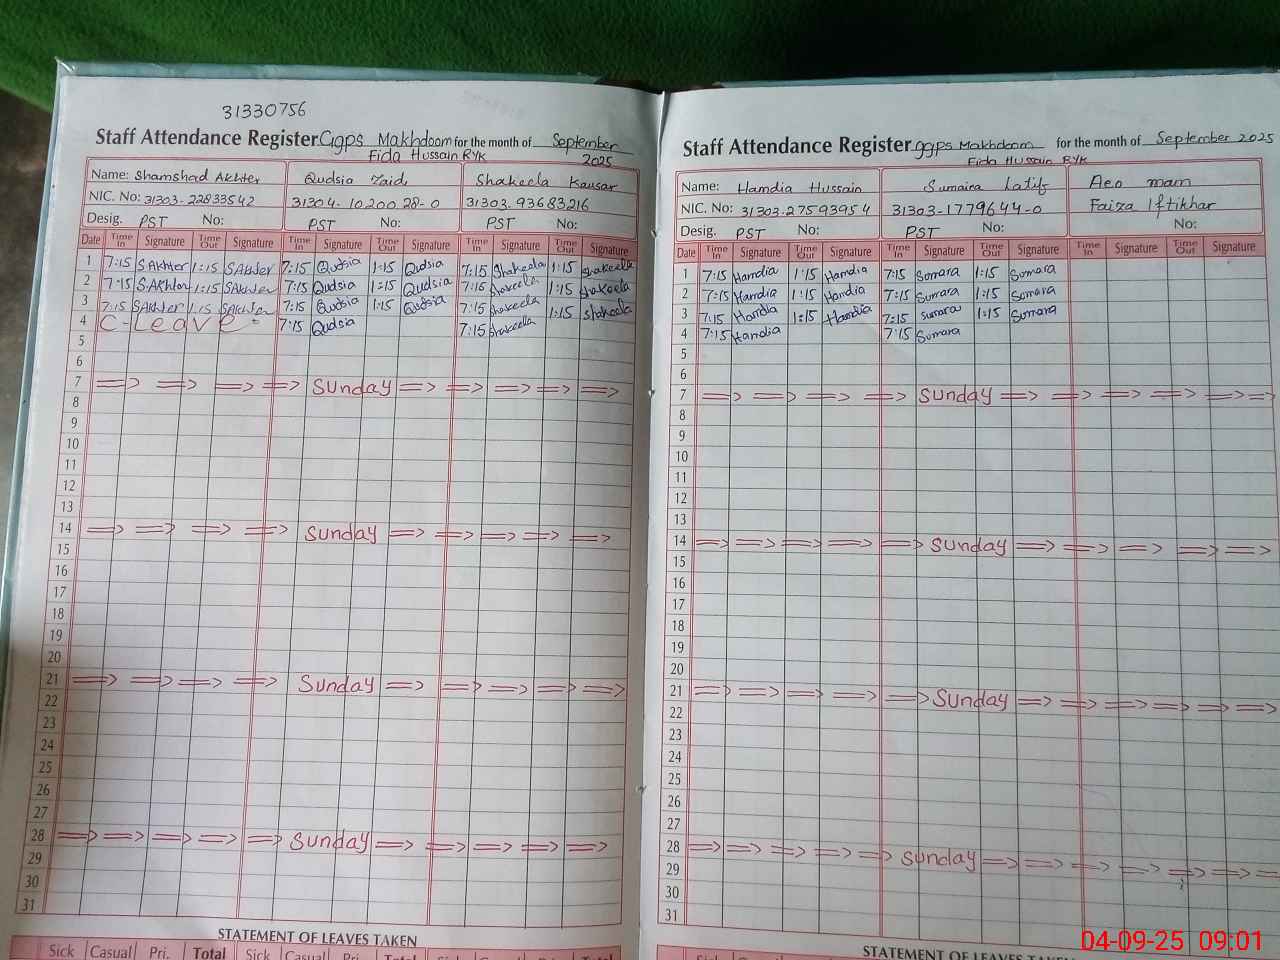 31330756
Staff Attendance Register Ggps Makhdoom for the month of September
Fida Hussain RYK 2025
Name: Shamshad Akhter Qudsia Zaidi Shakeela Kausar
NIC. No: 31303-22833542 31304-10200 28-0 31303.93683216
Desig. PST No: PST No: PST No:
Date Time In Signature Time Out Signature Time In Signature Time Out Signature Time In Signature Time Out Signature
1 7:15 SAkhter 1:15 SAkhter 7:15 Qudsia 1:15 Qudsia 7:15 Shakeela 1:15 Shakeela
2 7:15 SAkhter 1:15 SAkhter 7:15 Qudsia 1:15 Qudsia 7:15 Shakeela 1:15 Shakeela
3 7:15 SAkhter 1:15 SAkhter 7:15 Qudsia 1:15 Qudsia 7:15 Shakeela 1:15 Shakeela
4 C-Leave 7:15 Qudsia 7:15 Shakeela
5
6
7 Sunday
8
9
10
11
12
13
14 Sunday
15
16
17
18
19
20
21 Sunday
22
23
24
25
26
27
28 Sunday
29
30
31
STATEMENT OF LEAVES TAKEN
Sick Casual Pri. Total Sick Casual Pri. Total Sick Casual Pri. Total
Staff Attendance Register ggps Makhdoom for the month of September 2025
Fida Hussain RYK
Name: Hamdia Hussain Sumaira Latif Aeo mam
NIC. No: 31303-27593954 31303-1779644-0 Faiza Iftikhar
Desig. PST No: PST No: No:
Date Time In Signature Time Out Signature Time In Signature Time Out Signature Time In Signature Time Out Signature
1 7:15 Hamdia 1:15 Hamdia 7:15 Sumara 1:15 Sumara
2 7:15 Hamdia 1:15 Hamdia 7:15 Sumara 1:15 Sumara
3 7:15 Hamdia 1:15 Hamdia 7:15 Sumara 1:15 Sumara
4 7:15 Hamdia 7:15 Sumara
5
6
7 Sunday
8
9
10
11
12
13
14 Sunday
15
16
17
18
19
20
21 Sunday
22
23
24
25
26
27
28 Sunday
29
30
31
STATEMENT OF LEAVES TAKEN
04-09-25 09:01